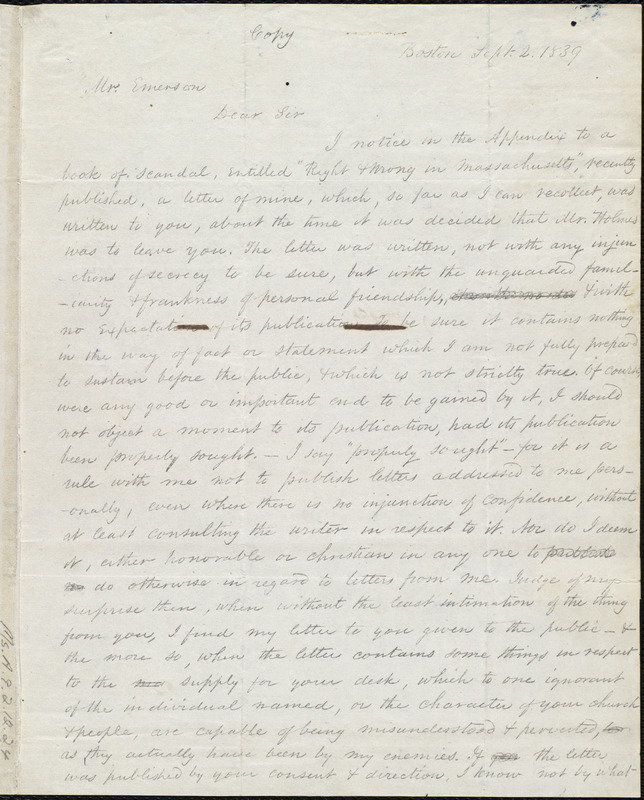 Copy
Boston Sept. 2. 1839
Mr. Emerson
Dear Sir
I notice in the Appendix to a
book of scandal, entitled "Right & Wrong in Massachusetts", recently
published, a letter of mine, which, so far as I can recollect, was
written to you, about the time it was decided that Mr. Holmes
was to leave you. The letter was written, not with any injun
-ctions of secrecy to be sure, but with the unguarded famil-
-iarity & frankness of personal friendship, & with
no expectation of its publication. To be sure it contains nothing
in the way of fact or statement which I am not fully prepared
to sustain before the public, & which is not strictly true. Of course
were any good or important end to be gained by it, I should
not object a moment to its publication, had its publication
been properly sought. — I say "properly sought" — for it is a
rule with me not to publish letters addressed to me pers-
-onally, even where there is no injunction of confidence, without
at least consulting the writer in respect to it. Nor do I deem
it, either honorable or christian in any one to
do otherwise in regard to letters from me. Judge of my
surprise then, when without the least intimation of the thing
from you, I find my letter to you given to the public — &
the more so, when the letter contains some things in respect
to the supply for your desk, which to one ignorant
of the individual named, or the character of your church
& people, are capable of being misunderstood & perverted,
as they actually have been by my enemies. If the letter
was published by your consent & direction, I know not by what-
Ms. A. 9. 2. 12. 24